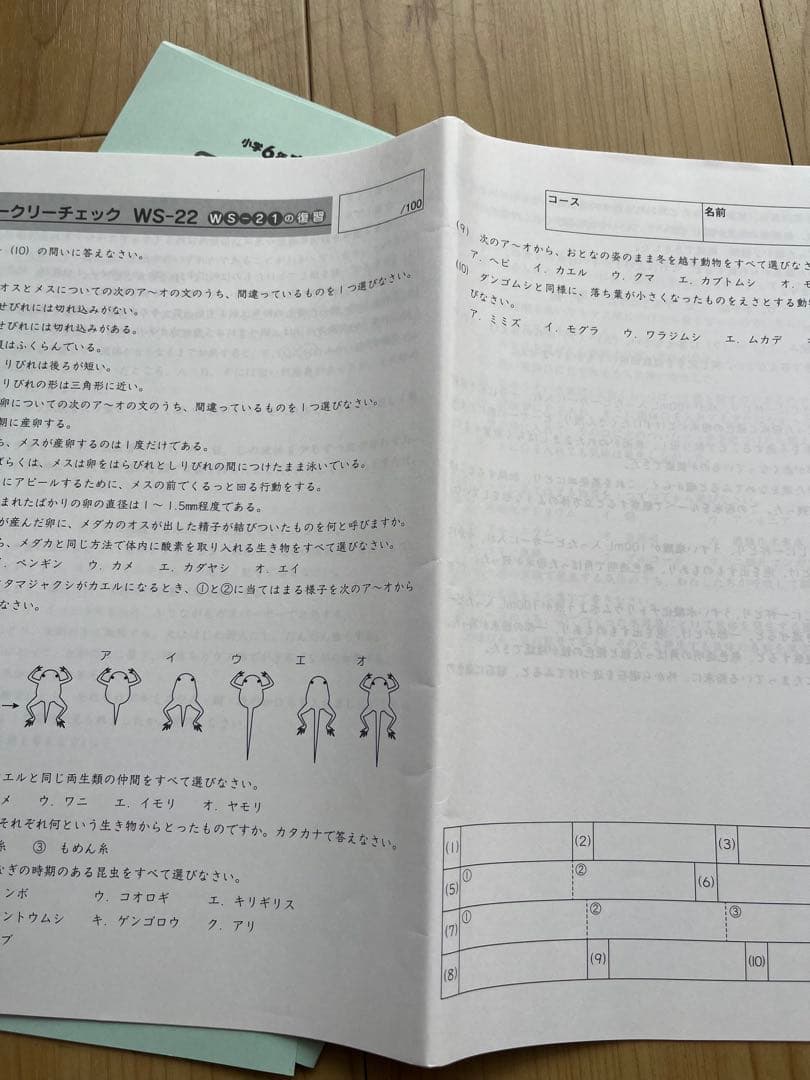 小学6年
ークリーチェック WS-22 WS-21の復習
/100
(10) の問いに答えなさい。
オスとメスについての次のア～オの文のうち、間違っているものを1つ選びなさい。
せびれには切れ込みがない。
せびれには切れ込みがある。
はふくらんでいる。
りびれは後ろが短い。
りびれの形は三角形に近い。
卵についての次のア～オの文のうち、間違っているものを1つ選びなさい。
期に産卵する。
ら、メスが産卵するのは1度だけである。
ばらくは、メスは卵をはらびれとしりびれの間につけたまま泳いでいる。
にアピールするために、メスの前でくるっと回る行動をする。
まれたばかりの卵の直径は1～1.5mm程度である。
が産んだ卵に、メダカのオスが出した精子が結びついたものを何と呼びますか。
ら、メダカと同じ方法で体内に酸素を取り入れる生き物をすべて選びなさい。
. ペンギン ウ. カメ エ. カダヤシ オ. エイ
タマジャクシがカエルになるとき、①と②に当てはまる様子を次のア～オから
なさい。
ア イ ウ エ オ
→
エルと同じ両生類の仲間をすべて選びなさい。
メ ウ. ワニ エ. イモリ オ. ヤモリ
それぞれ何という生き物からとったものですか。カタカナで答えなさい。
糸 ③ もめん糸
なぎの時期のある昆虫をすべて選びなさい。
ンボ ウ. コオロギ エ. キリギリス
ントウムシ キ. ゲンゴロウ ク. アリ
ブ
コース
名前
(9) 次のア～オから、おとなの姿のまま冬を越す動物をすべて選びなさ
ア. ヘビ イ. カエル ウ. クマ エ. カブトムシ オ. モ
(10) ダンゴムシと同様に、落ち葉が小さくなったものをえさとする動
びなさい。
ア. ミミズ イ. モグラ ウ. ワラジムシ エ. ムカデ
(1) (2) (3)
(5) ① ② (6)
(7) ① ② ③
(8) (9) (10)